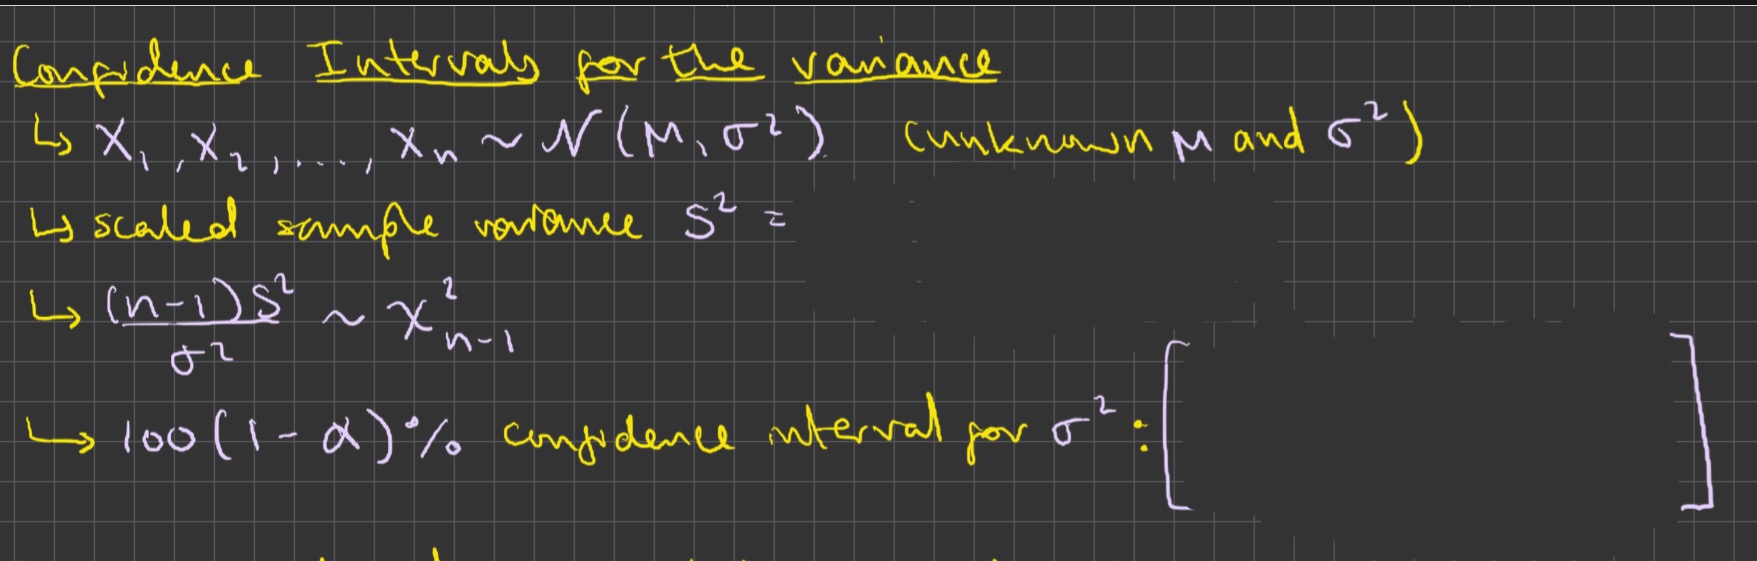 Confidence Intervals for the variance
↳ X₁, X₂, ...., Xₙ ~ N(μ, σ²) (unknown μ and σ²)
↳ scaled sample variance S² =
↳ (n-1)S² / σ² ~ χ²ₙ₋₁
↳ 100(1-α)% confidence interval for σ² : [ ]